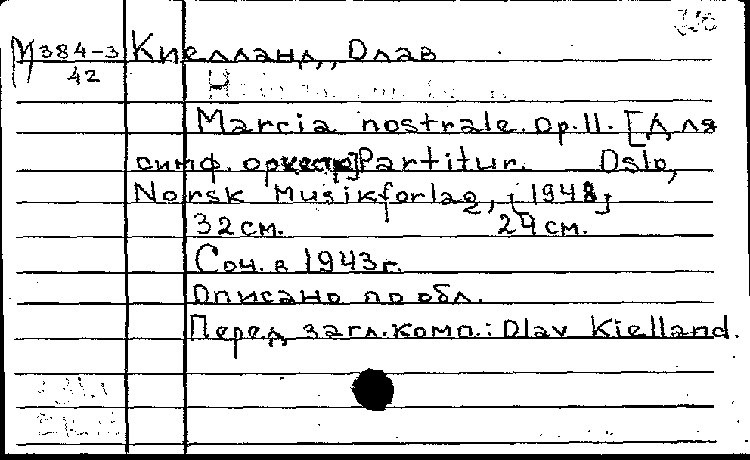 М 384-3 Киелланд, Олав
42
Marcia nostrale. Op. 11. [Для
симф. оркестра] Partitur. Oslo,
Norsk Musikforlag, [1948]
32 см. 24 см.
Соч. в 1943 г.
Описано по обл.
Перед загл. комп.: Olav Kielland.